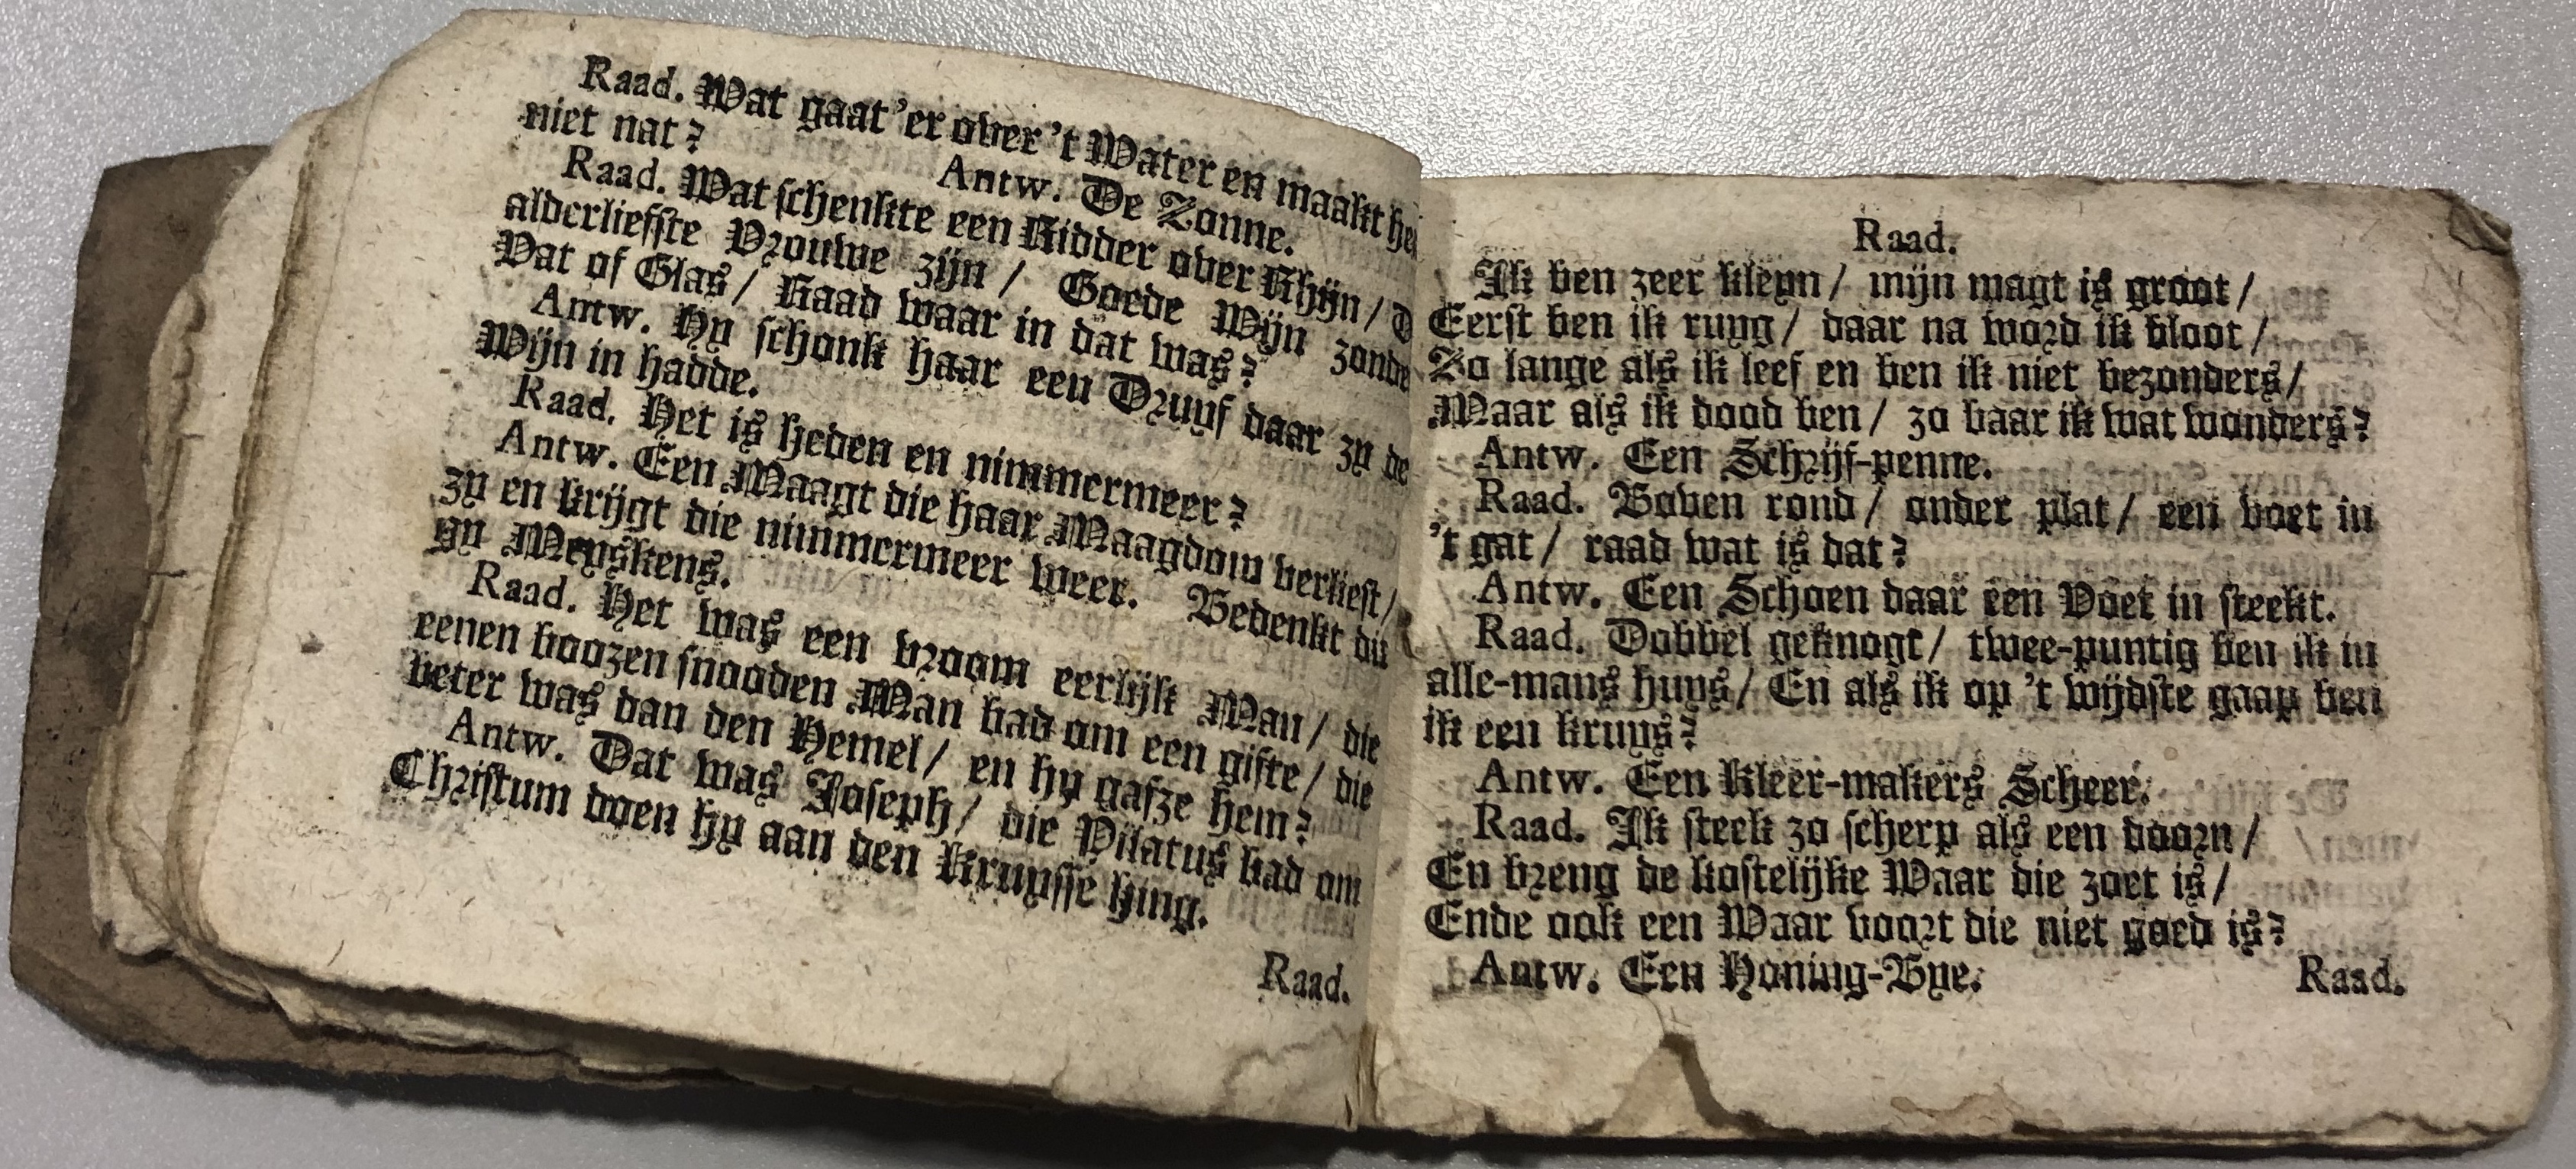 Raad. Wat gaat 'er over 't Water en maakt het
niet nat?
Antw. De Zonne.
Raad. Wat schenkte een Ridder over Rhijn/
alderliefste Vrouwe zijn/ Goede Wijn zonde
Vat of Glas/ Raad waar in dat was?
Antw. Hy schonk haar een Druyf daar zy de
Wijn in hadde.
Raad. Het is heden en nimmermeer?
Antw. Een Maagt die haar Maagdom verliest/
zy en krijgt die nimmermeer weer. Bedenkt dit
gy Meyskens.
Raad. Het was een vroom eerlijk Man/ die
eenen boozen snooden Man bad om een gifte/ die
beter was dan den Hemel/ en hy gafze hem?
Antw. Dat was Joseph/ die Pilatus bad om
Christum doen hy aan den Kruysse hing.
Raad.
Raad.
Ik ben zeer kleyn/ mijn magt is groot/
Eerst ben ik ruyg/ daar na word ik bloot/
Zo lange als ik leef en ben ik niet bezonders/
Maar als ik dood ben/ zo baar ik wat wonders?
Antw. Een Schrijf-penne.
Raad. Boven rond/ onder plat/ een voet in
't gat/ raad wat is dat?
Antw. Een Schoen daar een Voet in steekt.
Raad. Dobbel geknogt/ twee-puntig ben ik in
alle-mans huys/ En als ik op 't wijdste gaap ben
ik een kruys?
Antw. Een Kleer-makers Scheer.
Raad. Ik steek zo scherp als een doorn/
En breng de kostelijke Waar die zoet is/
Ende ook een Waar voort die niet goed is?
Antw. Een Honing-Bye.
Raad.